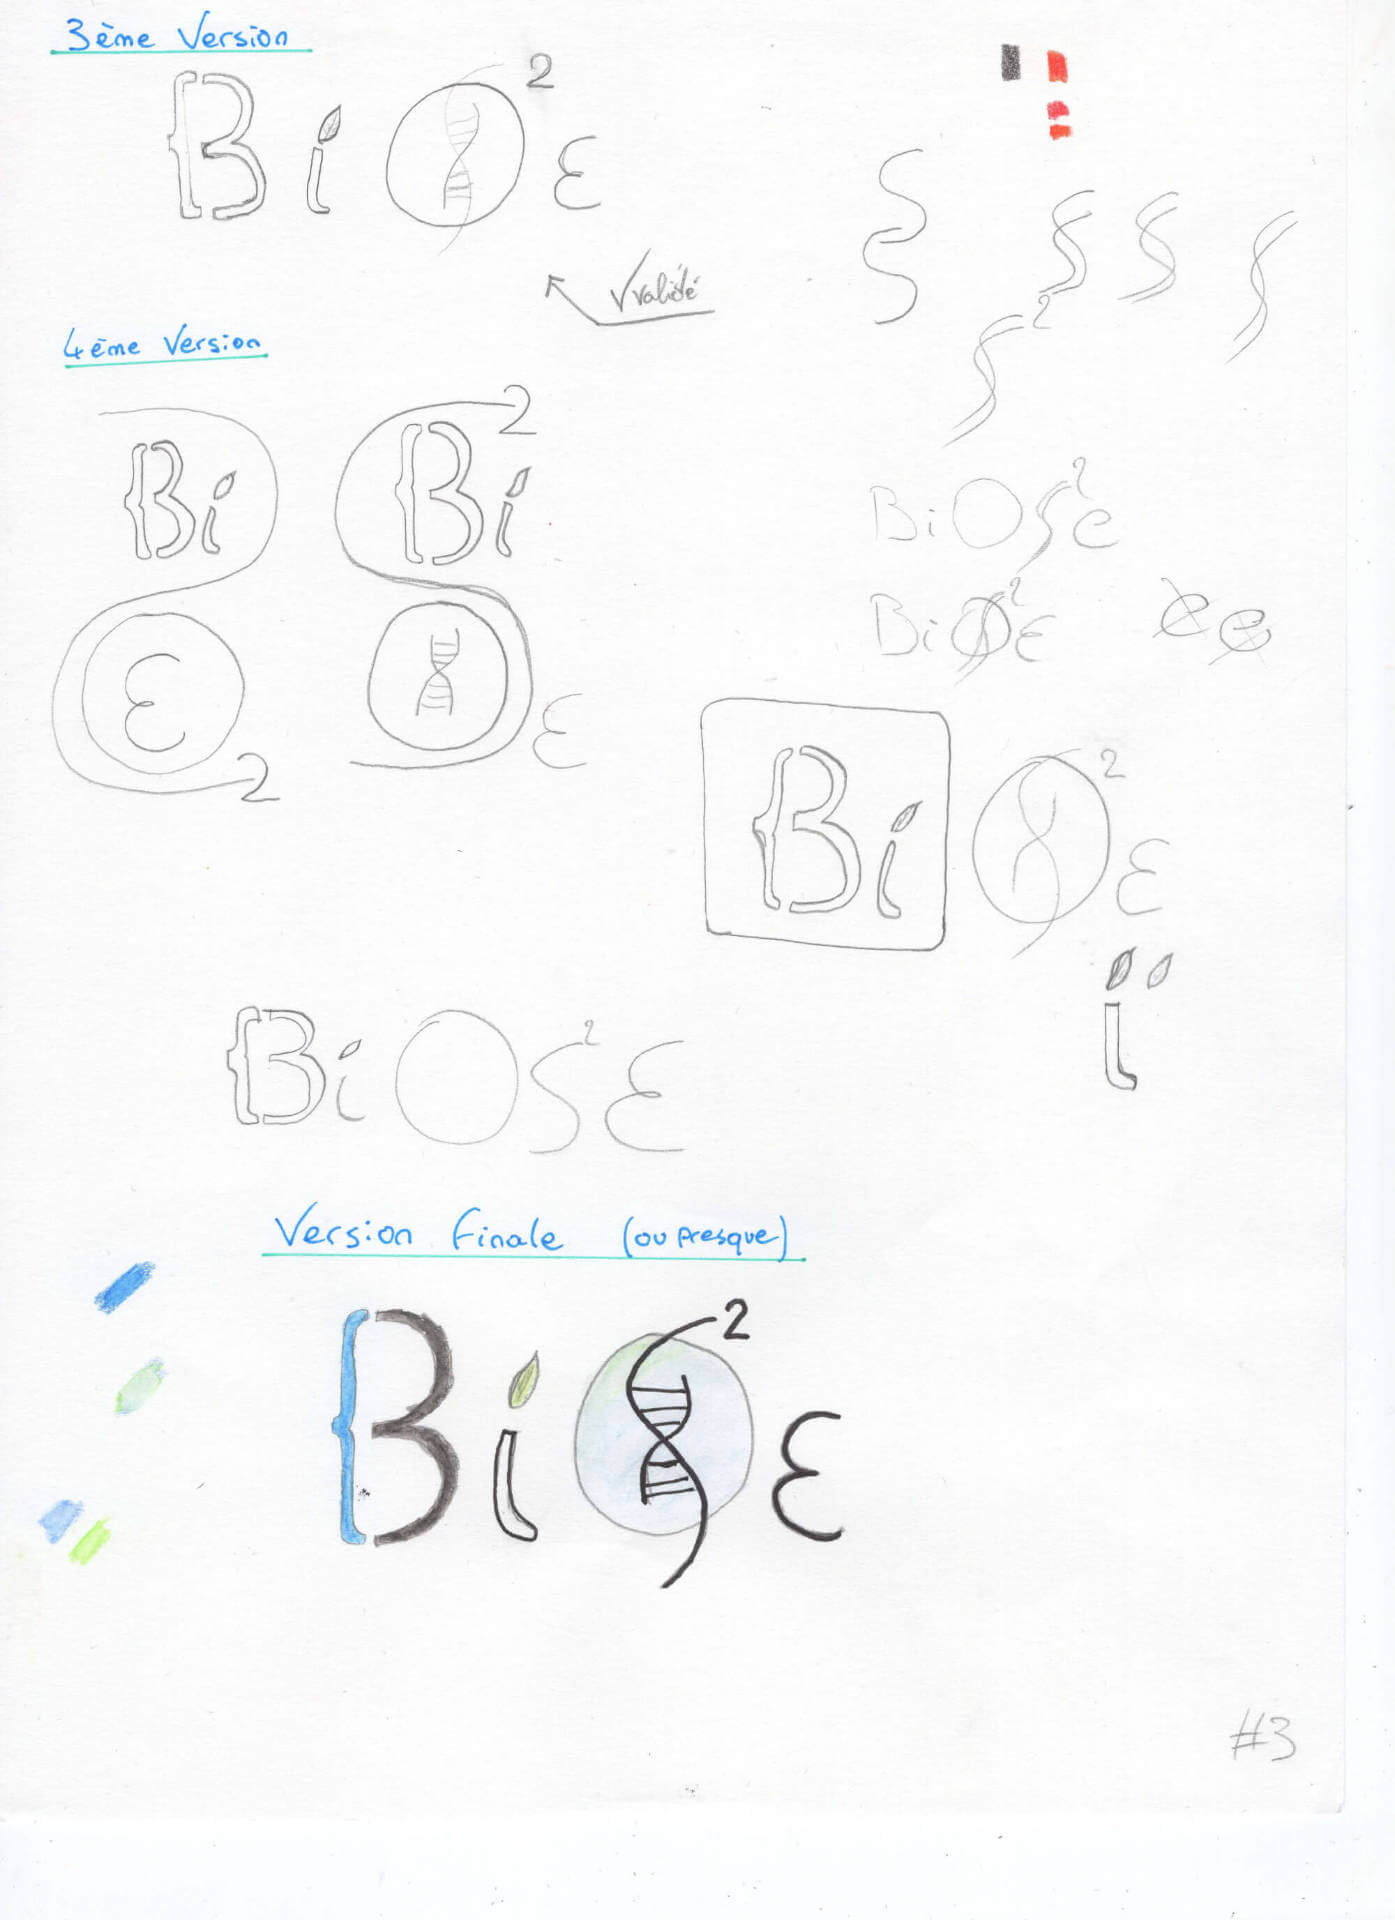 3ème Version
BiOS²ε
√ validé
4ème Version
Bi
ε
2
Bi
2
ε
2
BiOS²e
BiOS²ε
e e
BiOS²ε
i
BiOS²ε
Version Finale (ou presque)
BiOS²ε
#3